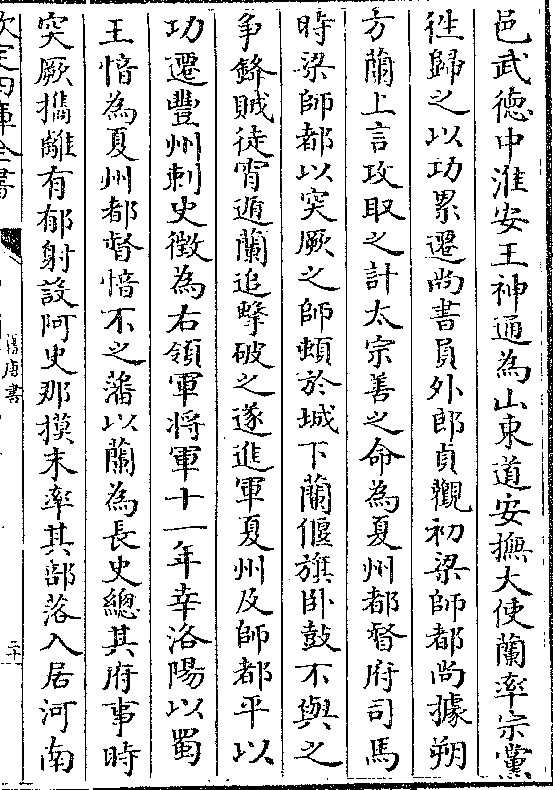 邑武徳中淮安王神通為山東道安撫大使蘭率宗黨
徃歸之以功累遷尚書員外郎貞觀初梁師都尚據朔
方蘭上言攻取之計太宗善之命為夏州都督府司馬
時梁師都以突厥之師頓於城下蘭偃旗卧鼓不與之
争鋒賊徒宵遁蘭追擊破之遂進軍夏州及師都平以
功遷豐州刺史徴為右領軍将軍十一年幸洛陽以蜀
王愔為夏州都督愔不之藩以蘭為長史總其府事時
突厥攜離有郁射設阿史那摸末率其部落入居河南
欽定四庫全書
舊唐書